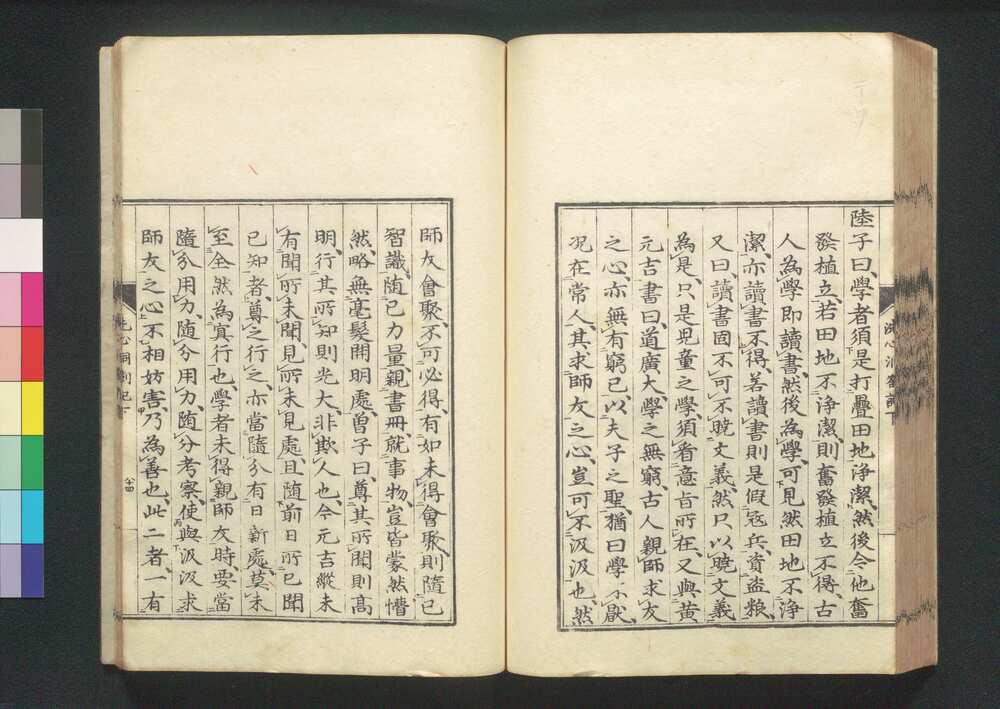 陸子曰、學者須是打疊田地淨潔、然後令他奮
發植立、若田地不淨潔、則奮發植立不得、古
人為學即讀書、然後為學可見、然田地不淨
潔、亦讀書不得、若讀書、則是假冦兵、資盜粮、
又曰、讀書固不可不曉文義、然只以曉文義
為是、只是児童之學、須看意旨所在、又與黄
元吉書曰、道廣大、學之無窮、古人親師求友
之心、亦無有窮已、以夫子之聖、猶曰學不厭、
况在常人、其求師友之心、豈可不汲汲也、然
師友會聚、不可必得、有如未得會聚、則隨已
智識、随已力量、親書冊、就事物、豈皆蒙然懵
然、略無毫髮開明處、曾子曰、尊其所聞則髙
明、行其所知則光大、非欺人也、今元吉縱未
有聞所未聞、見所未見處、且随前日所已聞
已知者、尊之行之、亦當隨分有日新處、莫未
至全然為冥行也、學者未得親師友時、要當
隨分用力、随分用力、随分考察、使與汲汲求
師友之心、不相妨害、乃為善也、此二者一有
洗心洞劄記下